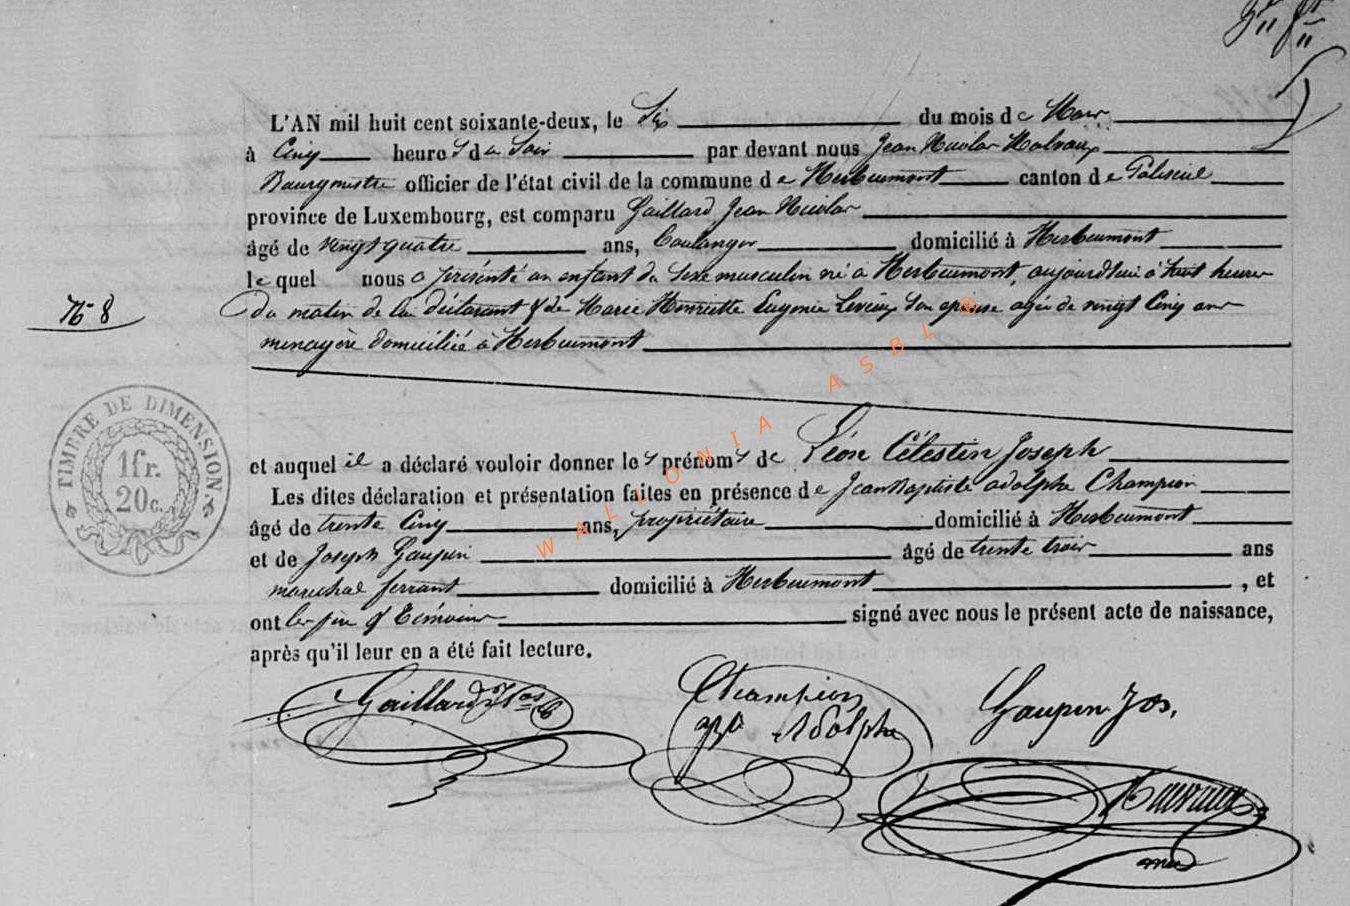 L'AN mil huit cent soixante-deux, le Six du mois de Mars
à Cinq heures du Soir par devant nous Jean Nicolas Malvaux
Bourgmestre officier de l'état civil de la commune de Herbeumont canton de Paliseul
province de Luxembourg, est comparu Gaillard Jean Nicolas
âgé de vingt quatre ans, boulanger domicilié à Herbeumont
lequel nous a présenté un enfant du sexe masculin né à Herbeumont, aujourd'hui à huit heures
du matin de lui déclarant & de Marie Henriette Eugénie son épouse agée de vingt Cinq ans
N° 8
menagère domiciliée à Herbeumont
TIMBRE DE DIMENSION.
1 fr.
20 c.
et auquel il a déclaré vouloir donner les prénoms de Léon Célestin Joseph
Les dites déclaration et présentation faites en présence de Jean Baptiste adolphe Champion
âgé de trente Cinq ans, propriétaire domicilié à Herbeumont
et de Joseph Gaupin âgé de trente trois ans
marechal ferrant domicilié à Herbeumont, et
ont les père & témoins signé avec nous le présent acte de naissance,
après qu'il leur en a été fait lecture.
Gaillard
Champion
Adolphe
Gaupin Jos.
WALLONIA ASBL ©